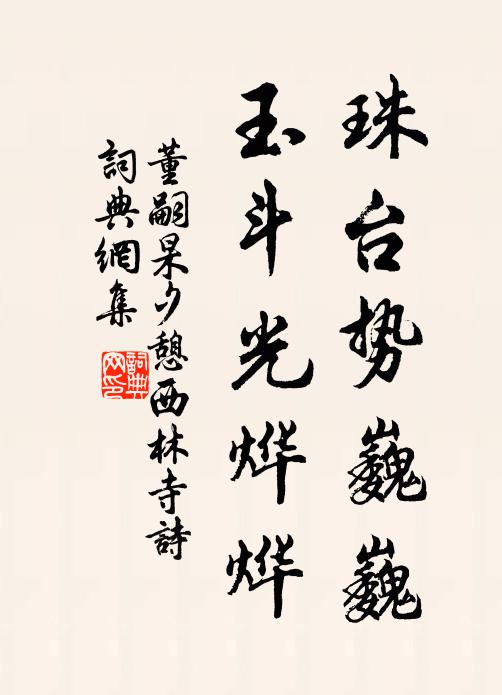 珠台势巍巍
玉斗光烨烨
董嗣杲夕憩西林寺詩
詞典網集
詞典網印